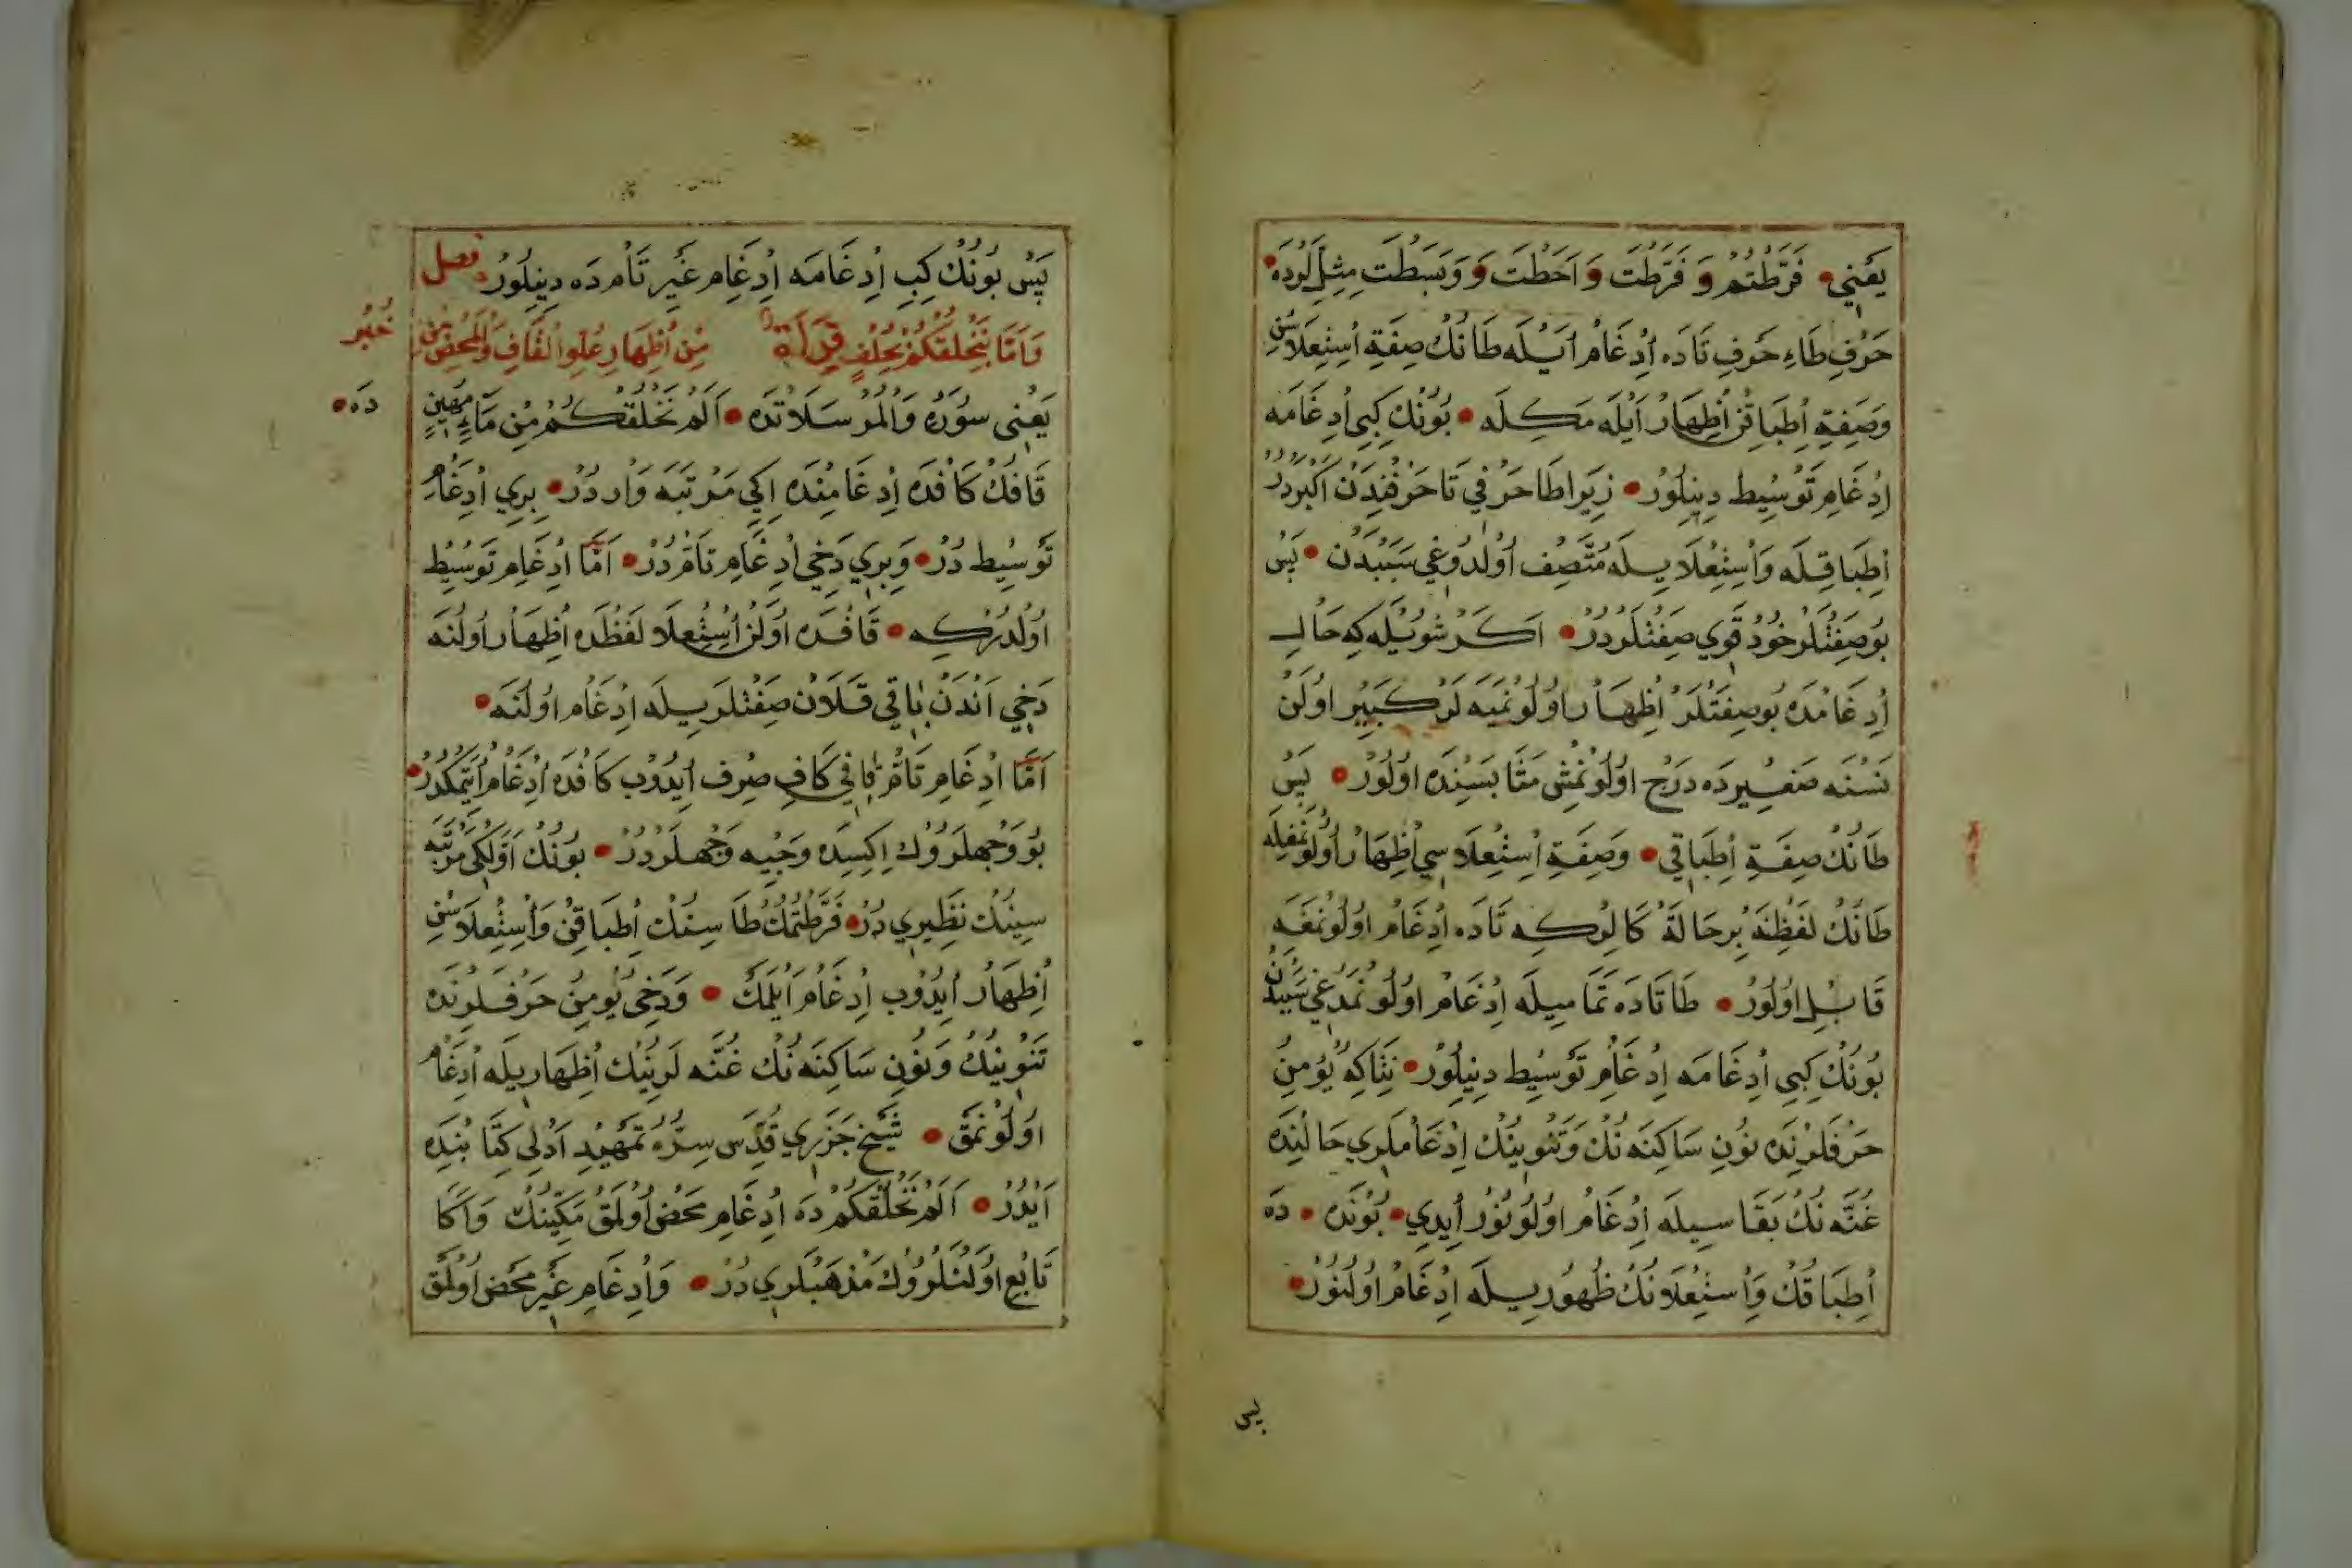 يَعْنِي • فَرَّطْتُمْ وَ فَرَّطْتَ وَ اَحَطْتَ وَ وَبَسَطْتَ مِثِللُودَه •
حَرْفِ طَاءِ حَرْفِ تَادَه اِدْغَامْ اَيْلَه طَانُكْ صِفَةِ اِسْتِعْلَاسْنِ
وَصِفَةِ اِطْبَاقِنْ اِظْهَارْ اَيْلَه مَكِلَه • بُونُكْ كِبِى اِدْغَامَه
اِدْغَامِ تَوْسِيطْ دِينِلُورْ • زِيرَا طَا حَرْفِي تَا حَرْفِنْدَنْ اَكْبَرْدُرْ
اِطْبَاقِلَه وَاِسْتِعْلَايِيلَه مُتَّصِفْ اُولْدُوغِي سَبَبْدَنْ • پَسْ
بُو صِفَتْلَرْ خُودْ قَوِي صِفَتْلَرْدُرْ • اَكَرْ شُويْلَه كِه حَالِ
اِدْغَامْدَه بُو صِفَتْلَرْ اِظْهَارْ اُولُونْمَيَه لَرْ كَبِيرْ اُولَنْ
نَسْنَه صَغِيرْدَه دَرْجْ اُولُونْمِشْ مَثَابَسِنْدَه اُولُورْ • پَسْ
طَانُكْ صِفَةِ اِطْبَاقِي • وَصِفَةِ اِسْتِعْلَاسِي اِظْهَارْ اُولُونْمَغِلَه
طَانُكْ لَفْظِنَه بِرْ حَالَةْ كَالُورْكِه تَادَه اِدْغَامْ اُولُونْمَغَه
قَابِلْ اُولُورْ • طَا تَادَه تَمَامِيلَه اِدْغَامْ اُولُونْمَدُغِي سَبَبْدَنْ
بُونُكْ كِبِي اِدْغَامَه اِدْغَامِ تَوْسِيطْ دِينِلُورْ • نِتَاكِه يُومِنُ
حَرْفَلَرِنْدَه نُونِ سَاكِنَه نُكْ وَتَنْوِينُكْ اِدْغَامْلَرِي حَالِنْدَه
غُنَّه نُكْ بَقَاسِيلَه اِدْغَامْ اُولُونُورْ اِيدِي • بُونْدَه • دَه
اِطْبَاقُكْ وَاِسْتِعْلَانُكْ ظُهُورِيلَه اِدْغَامْ اُولُنُورْ •
پس
پَسْ بُونُكْ كِبِ اِدْغَامَه اِدْغَامِ غَيْرِ تَامْ دَه دِينِلُورْ • فصل
وَاَمَّا بِنَخْلُقْكُمْ بِخُلْفٍ مِنْ اِظْهَارِ عُلُوِّ الْقَافِ وَالْمَحْضِ مِنْ خُبْرِ
يَعْنِى سُورَهْ وَالْمُرْسَلَاتْدَه • اَلَمْ نَخْلُقْكُمْ مِنْ مَاءٍ مَهِينٍ دَه •
قَافُكْ كَافْدَه اِدْغَامِنْدَه اِكِي مَرْتَبَه وَارْدُرْ • بِرِي اِدْغَامِ
تَوْسِيطْ دُرْ • وَبِرِي دَخِي اِدْغَامِ تَامْ دُرْ • اَمَّا اِدْغَامِ تَوْسِيطْ
اُولْدُرْكِه • قَافْدَه اُولَنْ اِسْتِعْلَا لَفْظَدَه اِظْهَارْ اُولُنَه
دَخِي اَنْدَنْ بَاقِي قَلَانْ صِفَتْلَرِيلَه اِدْغَامْ اُولُنَه •
اَمَّا اِدْغَامِ تَامْ قَافِي كَافِ صِرْفْ اِيدُوبْ كَافْدَه اِدْغَامْ اِيتْمَكْدُرْ •
بُو وَجْهلَرُوكْ اِكِيسِدَه وَجِيه وَجْهلَرْدُرْ • بُونُكْ اَوَّلْكِى مَرْتَبَه
سِينُكْ نَظِيرِي دُرْ • فَرَّطْتُمُكْ طَا سِنُكْ اِطْبَاقِنْ وَاِسْتِعْلَاسْنِ
اِظْهَارْ اِيدُوبْ اِدْغَامْ اَيْلَمَكْ • وَدَخِى يُومِنُ حَرْفَلَرِنْدَه
تَنْوِينُكْ وَنُونِ سَاكِنَه نُكْ غُنَّه لَرِنُكْ اِظْهَارِيلَه اِدْغَامْ
اُولُونْمَقْ • شَيْخْ جَزَرِي قُدِّسَ سِرُّهُ تَمْهِيدْ اَدْلِى كِتَابِنْدَه
اَيْدُرْ • اَلَمْ نَخْلُقْكُمْ دَه اِدْغَامِ مَحْضْ اُولْمَقْ مَكِّينُكْ وَاَكَا
تَابِعْ اُولَنْلَرُوكْ مَذْهَبْلَرِي دُرْ • وَاِدْغَامِ غَيْرِ مَحْضْ اُولْمَقْ